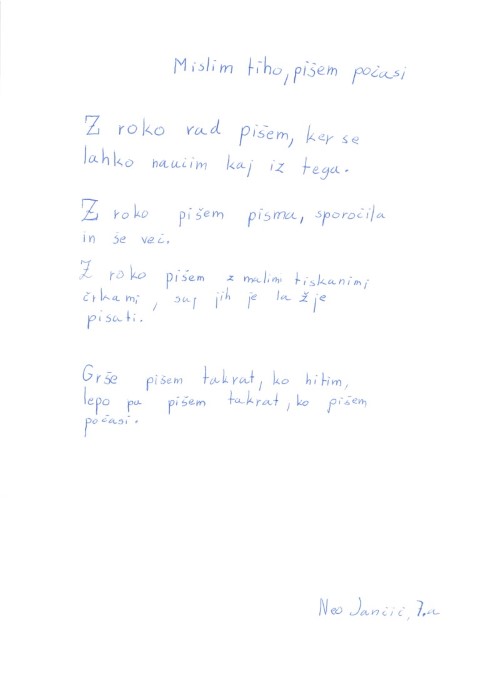 Mislim tiho, pišem počasi
Z roko rad pišem, ker se
lahko naučim kaj iz tega.
Z roko pišem pisma, sporočila
in še več.
Z roko pišem z malimi tiskanimi
črkami, saj jih je lažje
pisati.
Grše pišem takrat, ko hitim,
lepo pa pišem takrat, ko pišem
počasi.
Neo Jančič, 7.a